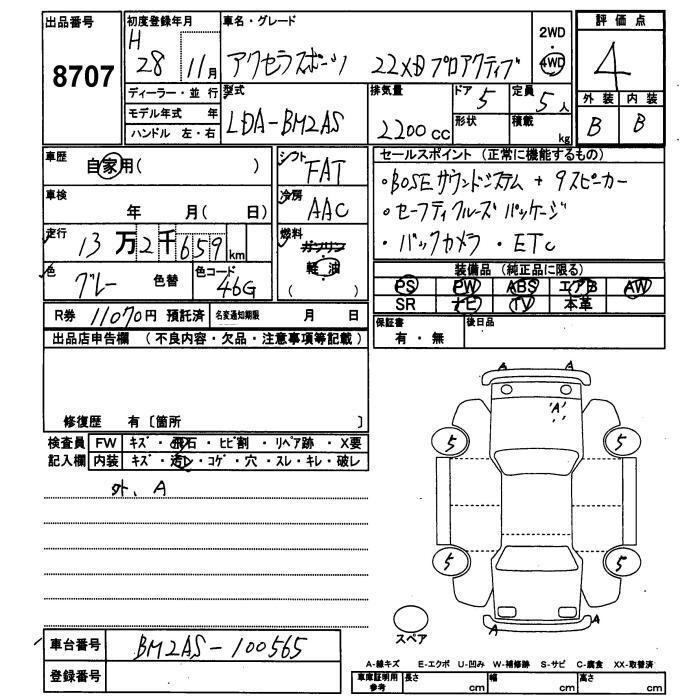 出品番号 初度登録年月 車名・グレード 2WD 評価点
8707 H 28 11月 アクセラスポーツ 22XD プロアクティブ 4WD 4
ディーラー・並 行 型式 排気量 ドア 定員 外装 内装
モデル年式 年 LDA-BM2AS 2200cc 5 5人 B B
ハンドル 左・右 形状 積載 kg
車歴 自家用( ) シフト FAT セールスポイント (正常に機能するもの)
車検 年 月( 日) 冷房 AAC ・BOSEサウンドシステム + 9スピーカー
走行 13万2千659km 燃料 ガソリン ・セーフティクルーズパッケージ
軽・油 ・バックカメラ ・ETC
( )
色 グレー 色替 色コード 46G 装備品 (純正品に限る)
PS PW ABS エアB AW
SR ナビ TV 本革
R券 11070円 預託済 名変通知期限 月 日 保証書 有・無 後日品
出品店申告欄 (不良内容・欠品・注意事項等記載)
修復歴 有〔箇所 〕
検査員 FW キズ・飛石・ヒビ割・リペア跡・X要
記入欄 内装 キズ・汚レ・コゲ・穴・スレ・キレ・破レ
外. A
A A
'A'
5 5
5 5
A A
スペア
車台番号 BM2AS-100565
登録番号
A-線キズ E-エクボ U-凹み W-補修跡 S-サビ C-腐食 XX-取替済
車庫証明用参考 長さ cm 幅 cm 高さ cm